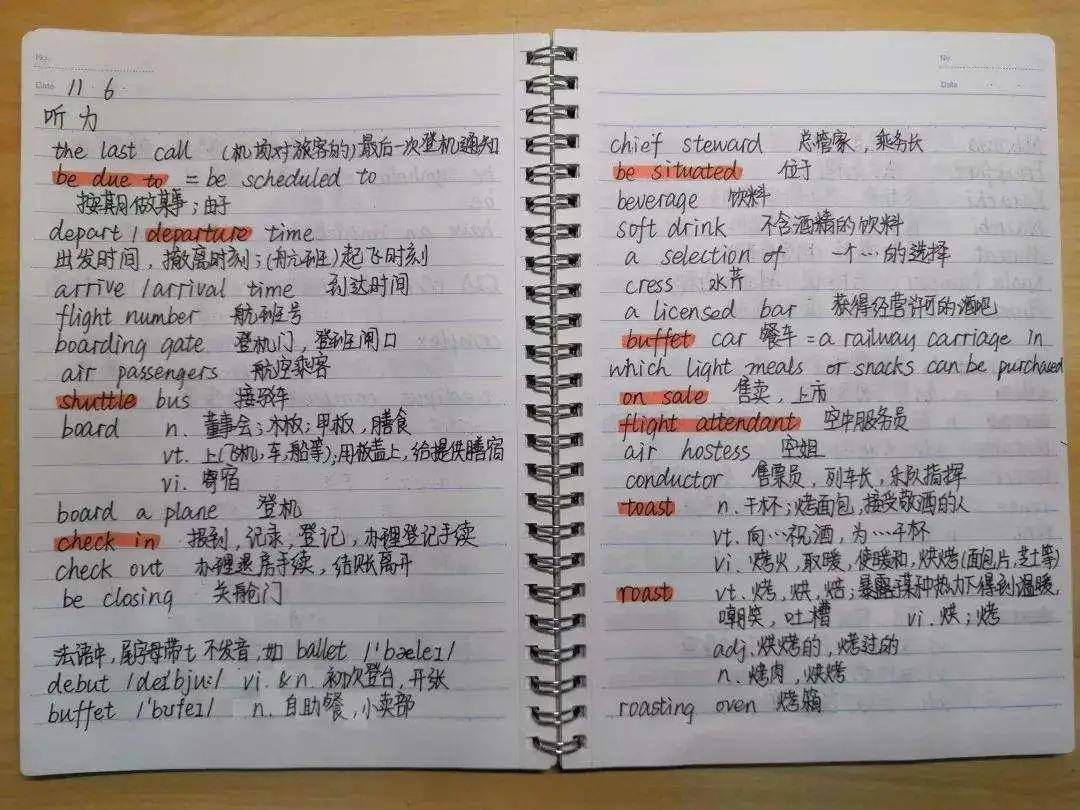 No.
Date 11 6
听力
the last call (机场对旅客的)最后一次登机通知
be due to = be scheduled to
按期做某事;由于
depart / departure time
出发时间,撤离时刻;(航班)起飞时刻
arrive /arrival time 到达时间
flight number 航班号
boarding gate 登机门,登班闸口
air passengers 航空乘客
shuttle bus 接驳车
board n. 董事会;木板;甲板,膳食
vt. 上(飞机,车,船等);用板盖上,给提供膳宿
vi. 寄宿
board a plane 登机
check in 报到,记录,登记,办理登记手续
check out 办理退房手续,结账离开
be closing 关舱门
法语中,尾字母带t不发音,如 ballet /'bæleɪ/
debut /deɪbjuː/ vi. & n. 初次登台,开张
buffet /'bʊfeɪ/ n. 自助餐,小卖部
No.
Date
chief steward 总管家,乘务长
be situated 位于
beverage 饮料
soft drink 不含酒精的饮料
a selection of 一个…的选择
cress 水芹
a licensed bar 获得经营许可的酒吧
buffet car 餐车 = a railway carriage in
which light meals or snacks can be purchased
on sale 售卖,上市
flight attendant 空中服务员
air hostess 空姐
conductor 售票员,列车长,乐队指挥
toast n. 干杯;烤面包,接受敬酒的人
vt. 向…祝酒,为…干杯
vi. 烤火,取暖,使暖和,烘烤(面包片,芝士等)
roast vt. 烤,烘,焙;暴露于某种热力下得到温暖,
嘲笑,吐槽 vi. 烘;烤
adj. 烘烤的,烤过的
n. 烤肉,烘烤
roasting oven 烤箱